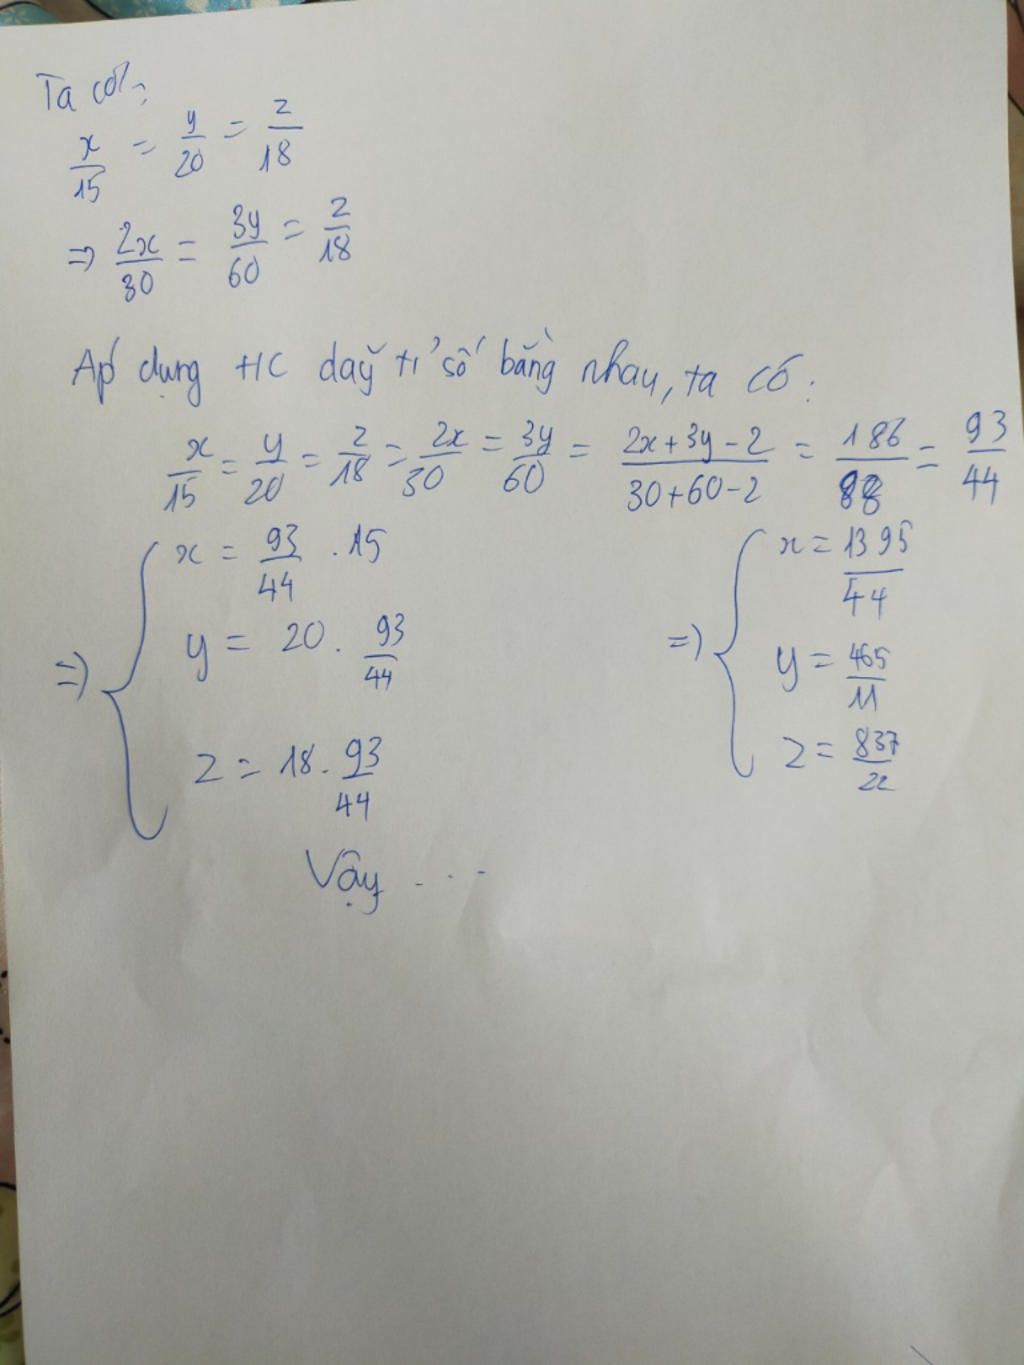 Ta có:
x/15 = y/20 = z/18
=> 2x/30 = 3y/60 = z/18
Áp dụng t/c dãy tỉ số bằng nhau, ta có:
x/15 = y/20 = z/18 = 2x/30 = 3y/60 = (2x+3y-z)/(30+60-2) = 186/88 = 93/44
=> { x = 93/44 . 15 => { x = 1395/44
y = 20 . 93/44 y = 465/11
z = 18 . 93/44 z = 837/22
Vậy ...